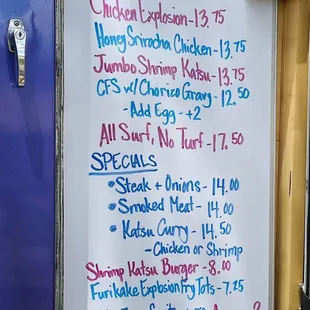 Chicken Explosion-13.75
Honey Sriracha Chicken-13.75
Jumbo Shrimp Katsu-13.75
CFS w/ Chorizo Gravy-12.50
-Add Egg-+2
All Surf, No Turf-17.50
SPECIALS
•Steak + Onions-14.00
•Smoked Meat-14.00
•Katsu Curry-14.50
-Chicken or Shrimp
Shrimp Katsu Burger-8.00
Furikake Explosion Fry Tots-7.25